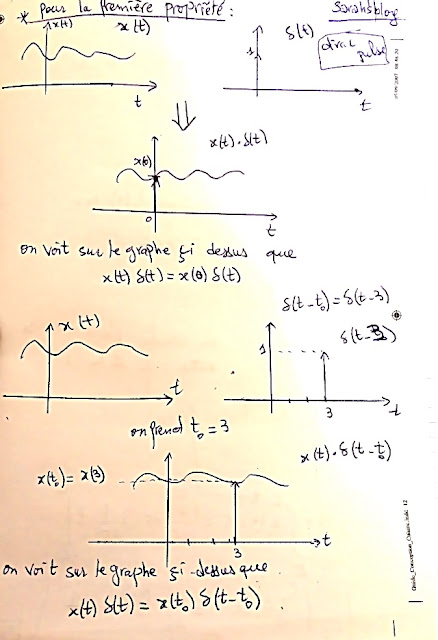 * Pour la Première propriété :
Sarahsblog
x(t)
x(t)
t
δ(t)
1
dirac
pulse
t
x(t).δ(t)
x(0)
0
t
on voit sur le graphe çi dessus que
x(t) δ(t) = x(0) δ(t)
δ(t-t₀) = δ(t-3)
x(t)
t
1
δ(t-3)
3
t
on prend t₀ = 3
x(t).δ(t-t₀)
x(t₀) = x(3)
3
t
on voit sur le graphe çi-dessus que
x(t) δ(t) = x(t₀) δ(t-t₀).